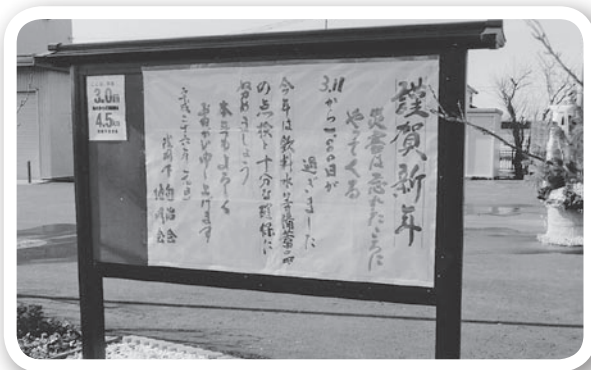 謹賀新年
災害は忘れたころに
やってくる
3.11から
の日が
過ぎました
今年は飲料水や備蓄品
の点検と十分な確保に
努めましょう
本年もよろしく
おねがい申し上げます
平成二十六年
自治会
3.0m
4.5km